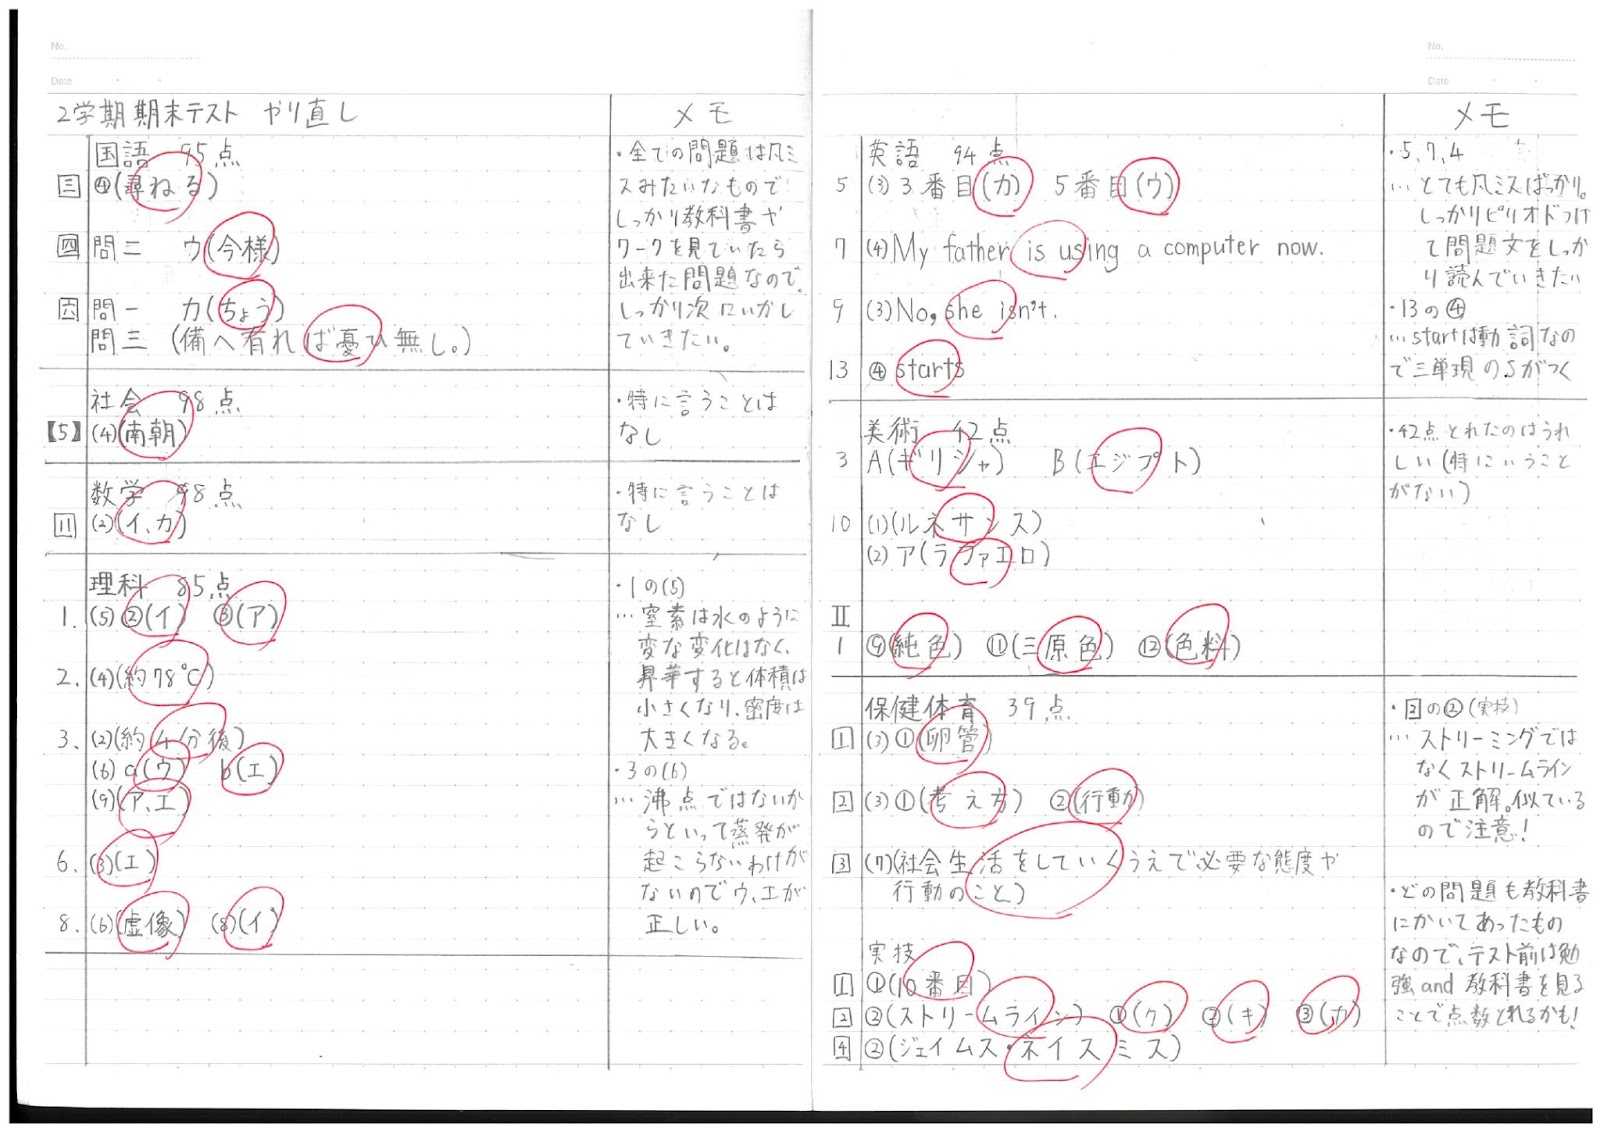 No.
Date
2学期期末テスト やり直し
メモ
国語 95点
三 ④(尋ねる)
四 問二 ウ(今様)
六 問一 カ(ちょう)
問三 (備へ有れば憂ひ無し。)
・全ての問題は凡ミ
スみたいなもので
しっかり教科書や
ワークを見ていたら
出来た問題なので、
しっかり次にいかし
ていきたい。
社会 98点
【5】(4)(南朝)
・特に言うことは
なし
数学 98点
11 (2)(イ、カ)
・特に言うことは
なし
理科 85点
1. (5)②(イ) ③(ア)
2. (4)(約78℃)
3. (2)(約4分後)
(6) a(ウ) b(エ)
(9)(ア、エ)
6. (3)(エ)
8. (6)(虚像) (8)(イ)
・1の(5)
… 窒素は水のように
変な変化はなく、
昇華すると体積は
小さくなり、密度は
大きくなる。
・3の(6)
… 沸点ではないか
らといって蒸発が
起こらないわけが
ないのでウ、エが
正しい。
No.
Date
メモ
英語 94点
5 (3) 3番目(カ) 5番目(ウ)
7 (4) My father is using a computer now.
9 (3) No, she isn't.
13 ④ starts
・5、7、4
… とても凡ミスばっかり。
しっかりピリオドつけ
て問題文をしっか
り読んでいきたい
・13の④
… startは動詞なの
で三単現のSがつく
美術 42点
3 A(ギリシャ) B(エジプト)
10 (1)(ルネサンス)
(2) ア(ラファエロ)
Ⅱ
1 ⑨(純色) ⑪(三原色) ⑫(色料)
・42点とれたのはうれ
しい(特にいうこと
がない)
保健体育 39点
1 (3)①(卵管)
2 (3)①(考え方) ②(行動)
3 (7)(社会生活をしていくうえで必要な態度や
行動のこと)
実技
1 ①(10番目)
2 ②(ストリームライン) ①(ク) ②(キ) ③(カ)
4 ②(ジェイムス・ネイスミス)
・2の②(実技)
… ストリーミングでは
なくストリームライン
が正解。似ている
ので注意!
・どの問題も教科書
にかいてあったもの
なので、テスト前は勉
強and教科書を見る
ことで点数とれるかも!